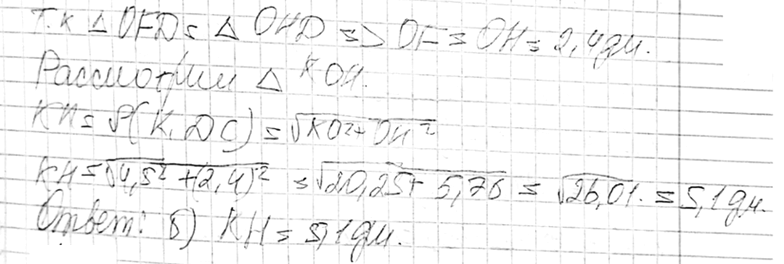 Т.к △ OFD = △ OHD => OF = OH = 2,4дм.
Рассмотрим △ KOH.
KH = ρ(K, DC) = √KO²+OH²
KH = √4,5²+(2,4)² = √20,25+5,76 = √26,01 = 5,1дм.
Ответ: б) KH = 5,1дм.